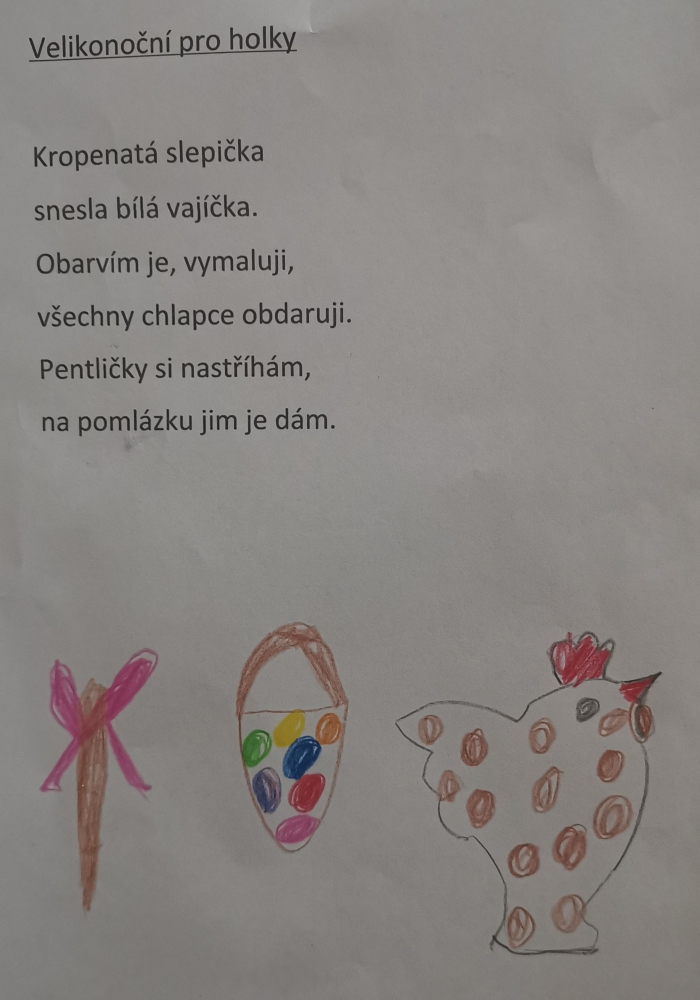 Velikonoční pro holky
Kropenatá slepička
snesla bílá vajíčka.
Obarvím je, vymaluji,
všechny chlapce obdaruji.
Pentličky si nastříhám,
na pomlázku jim je dám.